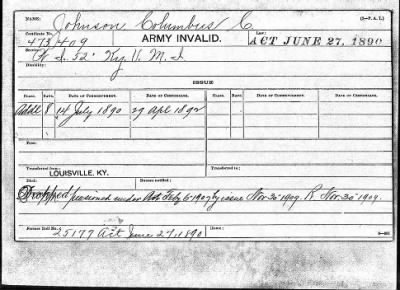 NAME: Johnson Columbus C. (3-F. A. T.)
Certificate No. 473409 ARMY INVALID. Law: ACT JUNE 27, 1890
Service: 52' Ky. U. M. I
Disability:
ISSUE
CLASS. RATE. DATE OF COMMENCEMENT. DATE OF CERTIFICATE. CLASS. RATE. DATE OF COMMENCEMENT. DATE OF CERTIFICATE.
Addl 8 14 July 1890 29 Apl 1892
Transferred from Transferred to:
LOUISVILLE, KY.
Died: Bureau notified:
Dropped pensioned under Act Feb 6-1907 by issue Nov. 30 1909. R Nov. 30 1909.
Former Roll No.
25177 Act June 27, 1890